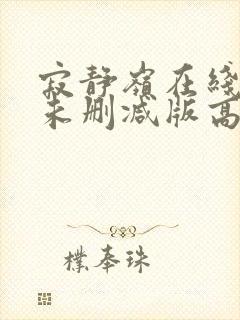 寂静嶺在綫
未删减版高
樸奉珠